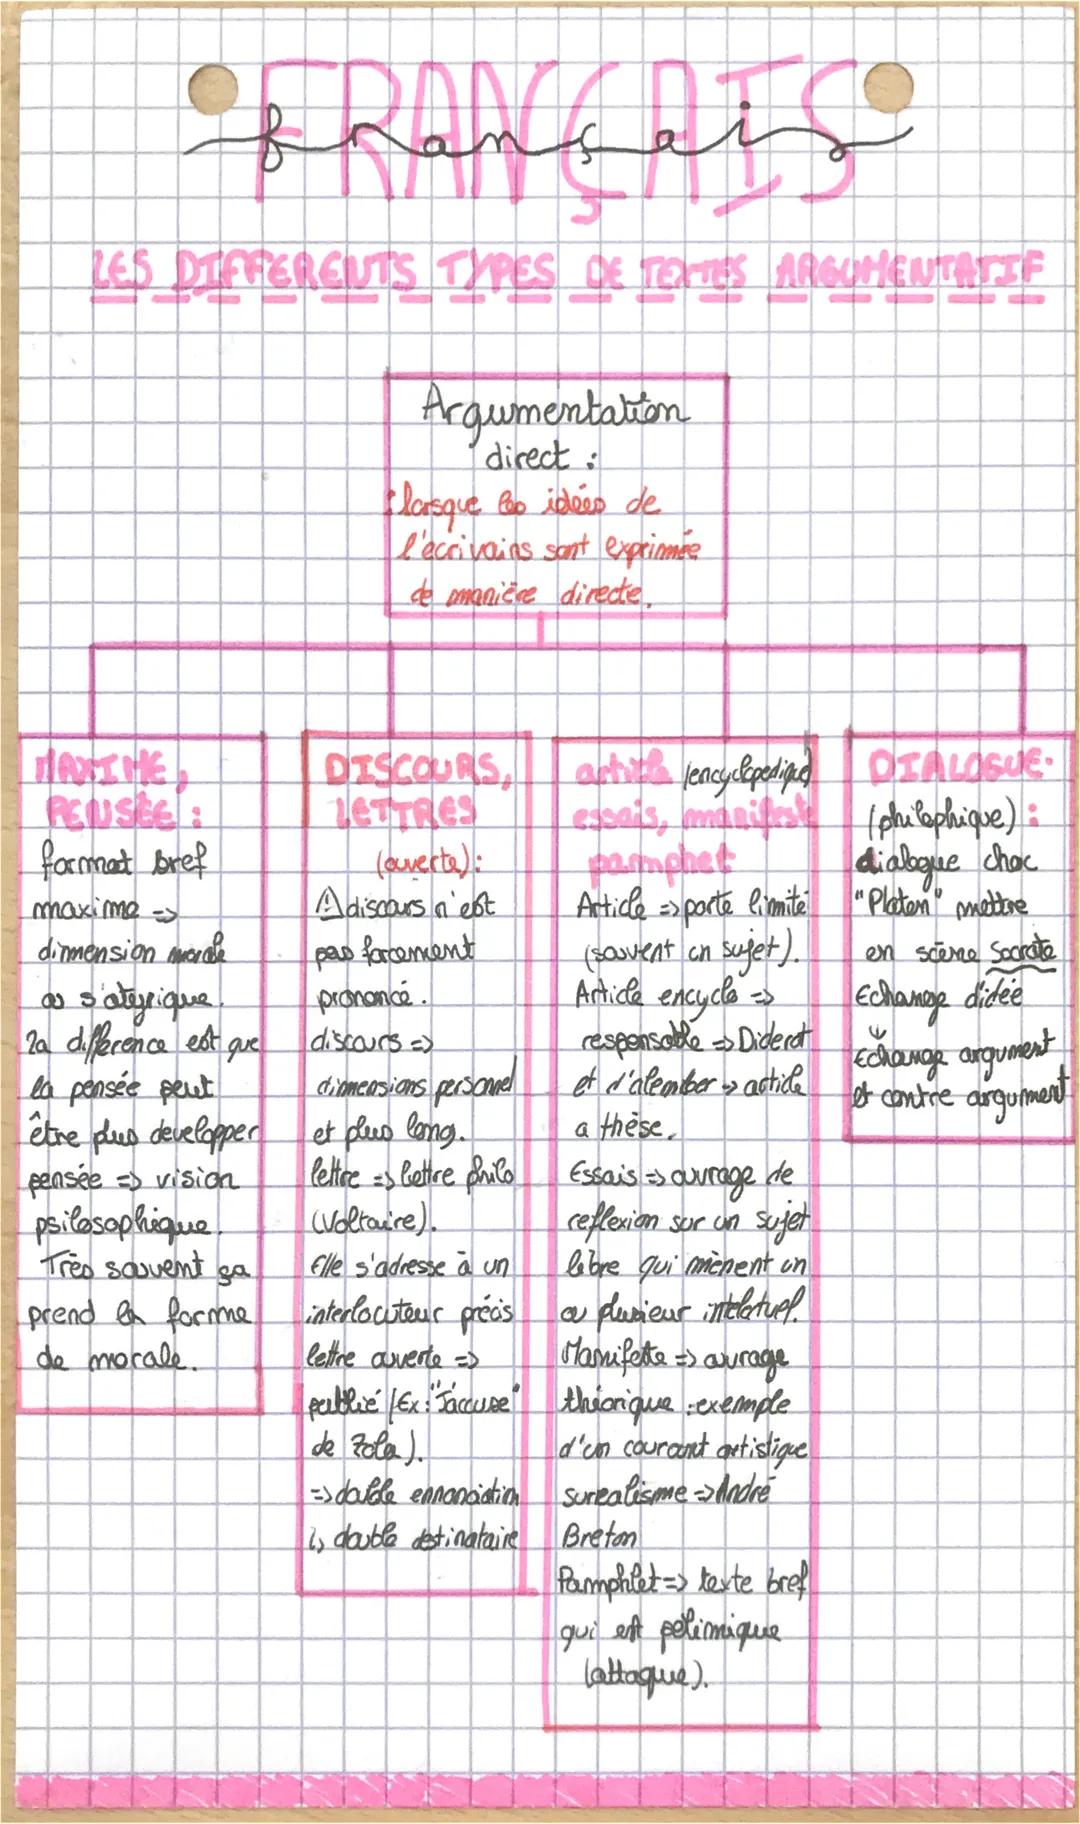 FRANÇAIS
français
LES DIFFERENTS TYPES DE TEXTES ARGUMENTATIF
Argumentation
direct :
: lorsque les idées de
l'écrivains sont exprimée
de manière directe.
MAXIME,
PENSÉE :
format bref
maxime =>
dimension morale
ou s'atyrique.
La différence est que
la pensée peut
être plus developper
pensée => vision
psilosophique.
Très souvent ça
prend la forme
de morale.
DISCOURS,
LETTRES
(ouverte):
⚠ discours n'est
pas forcement
prononcé.
discours =>
dimensions personnel
et plus long.
lettre => lettre philo
(Voltaire).
Elle s'adresse à un
interlocuteur précis
lettre ouverte =>
publié (Ex: "J'accuse"
de Zola).
=> double ennonciation
↳ double destinataire
article (encyclopedique)
essais, manifeste
pamphet
Article => porte limité
(souvent un sujet).
Article encyclo =>
responsable => Diderot
et d'alember -> article
a thèse.
Essais => ouvrage de
reflexion sur un sujet
libre qui mènent un
ou plusieur intelectuel.
Manifeste => ouvrage
théorique : exemple
d'un courant artistique
surealisme => André
Breton
Pamphlet => texte bref
qui est polimique
(attaque).
DIALOGUE.
(philophique) :
dialogue choc
"Platon" mettre
en scène Socrate
Echange d'idée
↓
Echange argument
et contre argument